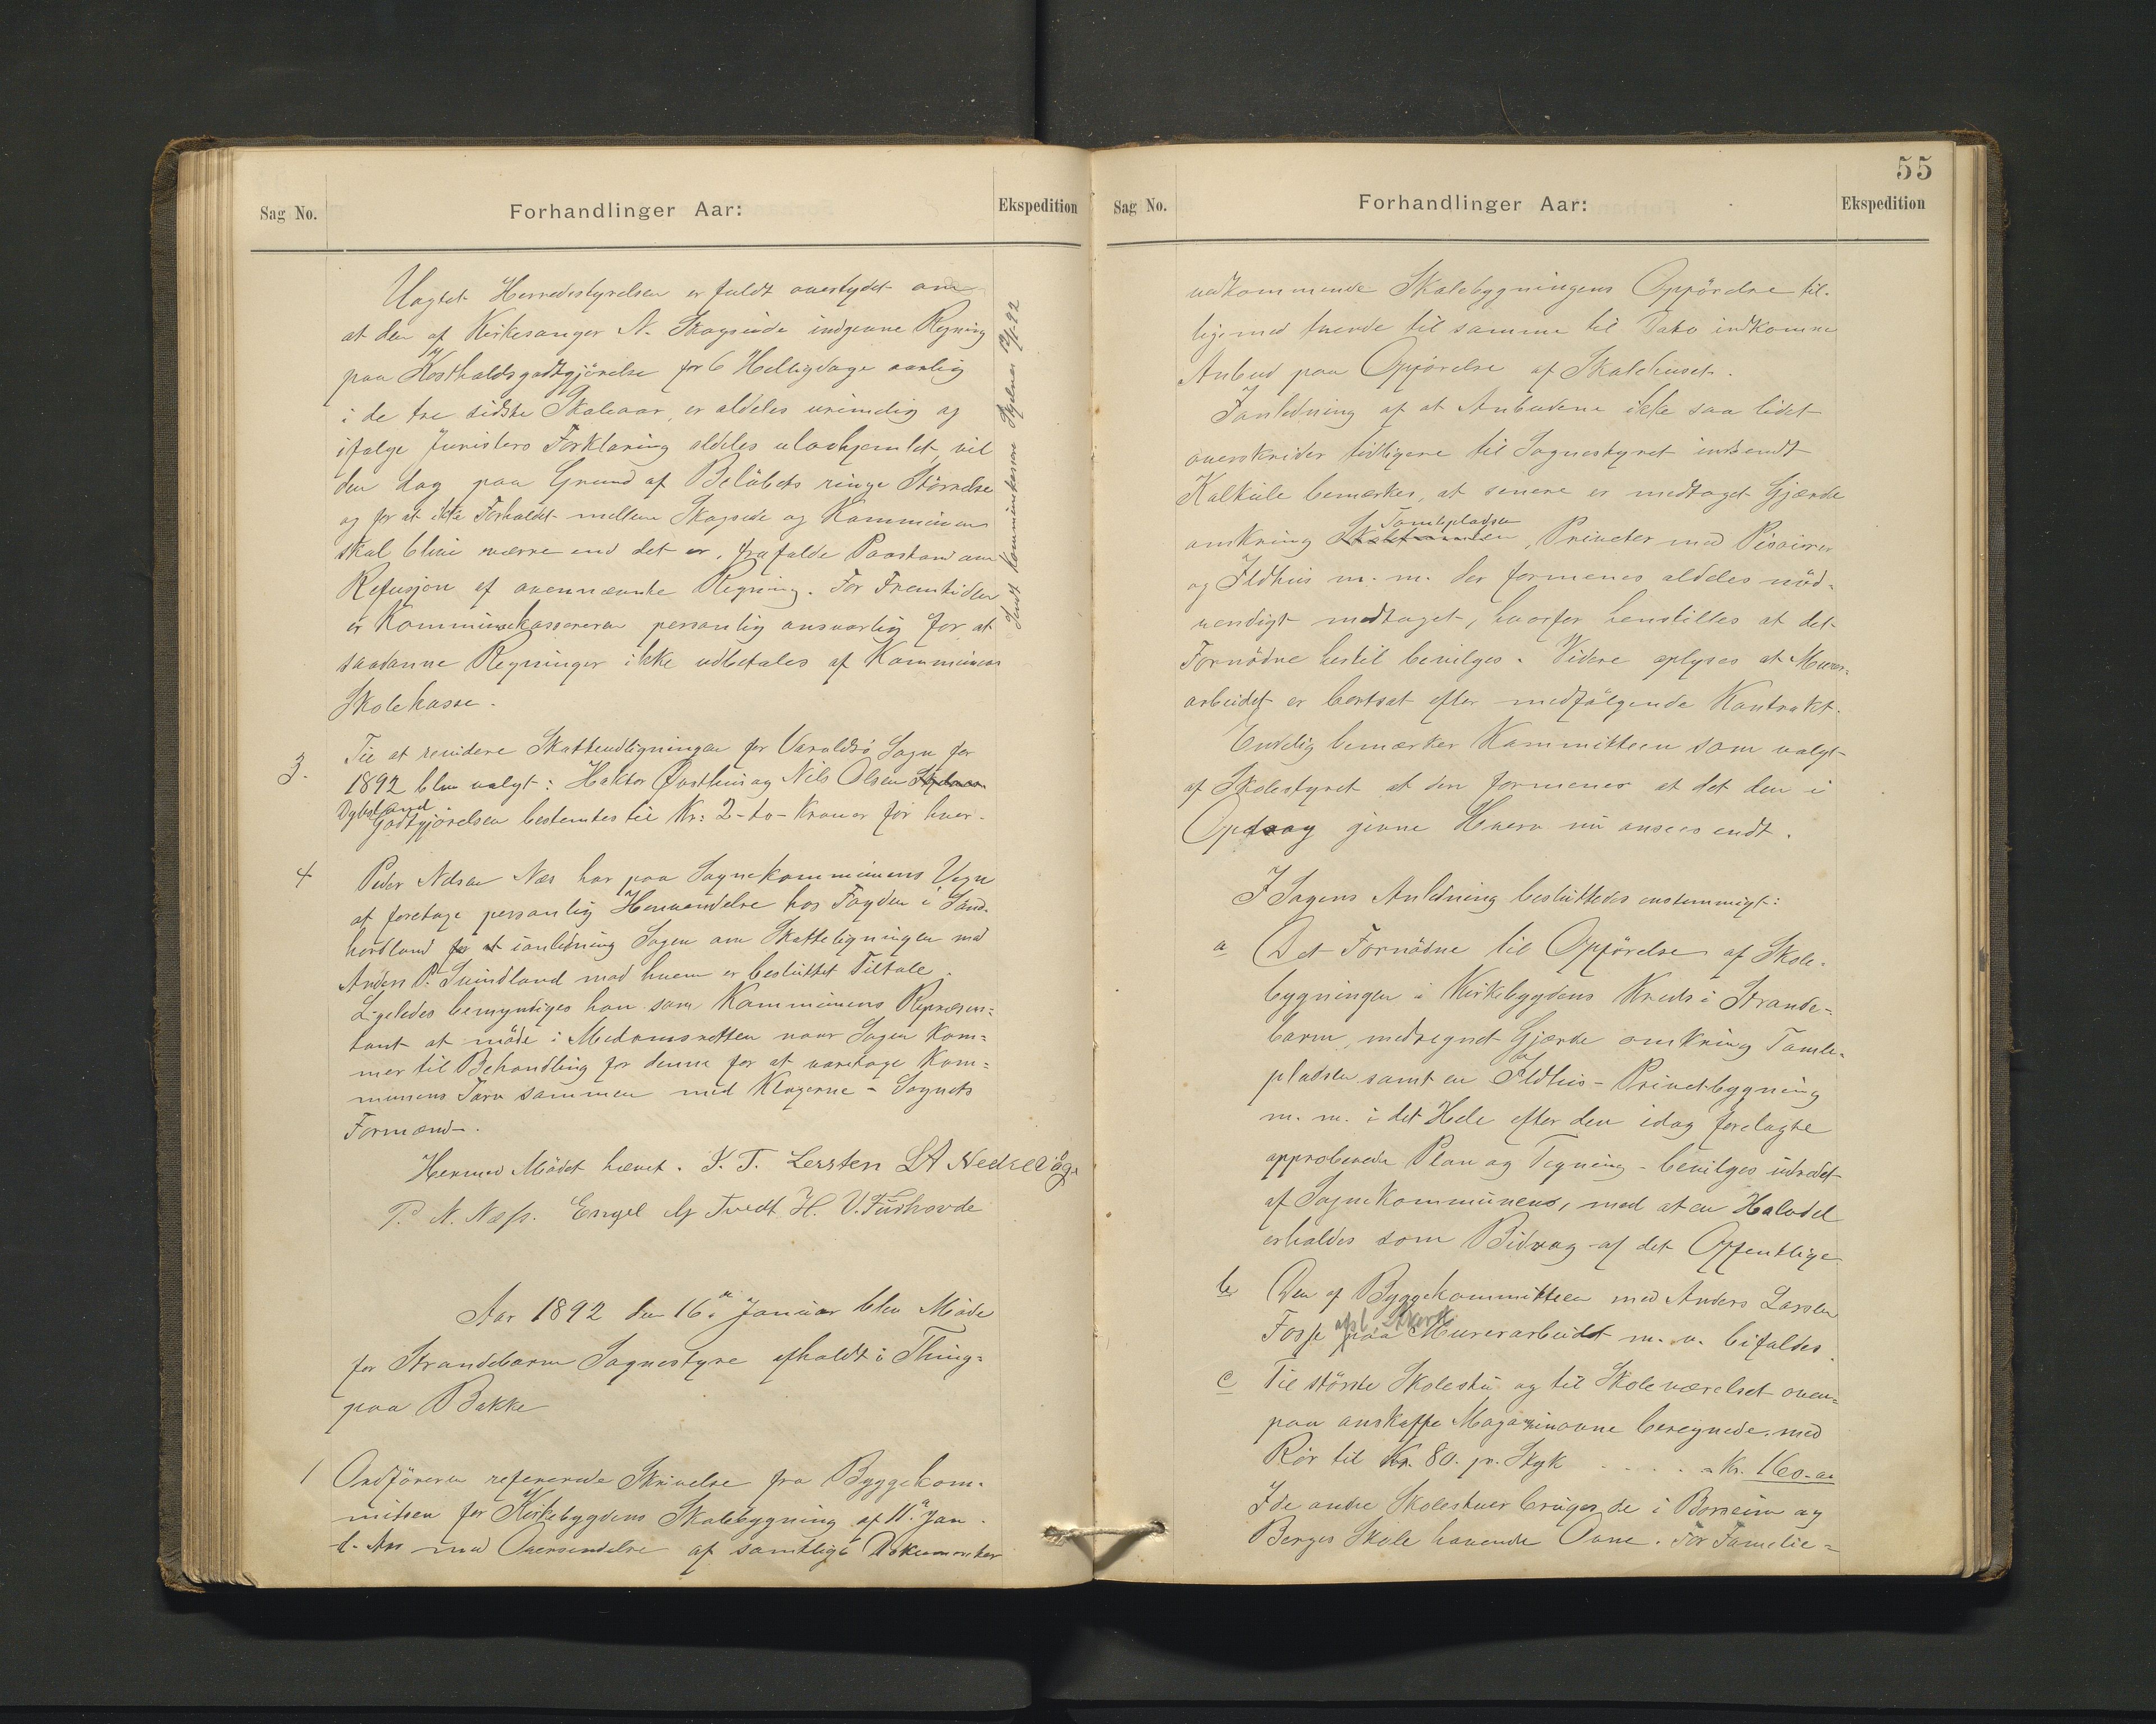 Sag No.
Forhandlinger Aar:
Ekspedition
Uagtet Herredsstyrelsen er fuldt overtydet om
at den af Kirkesanger N. Skogseide indgivne Regning
paa Kostholdsgodtgjörelse for 6 Helligdage aarlig
i de tre sidste Skoleaar, er aldeles urimelig og
ifølge Juristers Forklaring aldeles ulovhjemlet, vil
den dog paa Grund af Belöbets ringe Störrelse
og for at ikke Forholdet mellem Skogseide og Kommunen
skal blive værre end det er, frafalde Paastand om
Refusjon af ovennævnte Regning. For Fremtiden
er Kommunekassereren personlig ansvarlig for at
saadanne Regninger ikke udbetales af Kommunens
Skolekasse.
Sendt Kommunekasserer
3.
Til at revidere Skatteudligningen for Varaldsö Sogn for
1892 blev valgt: Haktor Østhus og Nils Olsen
Dybsland.
Godtgjörelsen bestemtes til Kr: 2 - to - Kroner for hver.
4
Peder Nelsen Næs har paa Sognekommunens Vegne
at foretage personlig Henvendelse hos Fogden i Sönd-
hordland for at ianledning Sagen om Skatteligningen med
Anders P. Svindland mod hvem er besluttet Tiltale.
Ligeledes bemyndiges han som Kommunens Repræsen=
tant at möde i Meddomsretten naar Sagen kom=
mer til Behandling for denne for at varetage Kom=
munens Tarv sammen med Klagerne - Sognets
Formænd.
Hermed Mödet hævet. J. T. Lersten LA Nedrevåge
P. N. Næss. Engel Tvedt H. V. Fushovde
Aar 1892 den 16de Januar blev Möde
for Strandebarm Sognestyre afholdt i Thing=
paa Bakke
1
Ordföreren refererede Skrivelse fra Byggekom-
miteen for Kirkebygdens Skolebygning af 11te Jan.
d. Aar med Oversendelse af samtlige Dokumenter
55
Sag No.
Forhandlinger Aar:
Ekspedition
vedkommende Skolebygningens Opförelse til-
ligemed tvende til samme til Dato indkomne
Anbud paa Opförelse af Skolehuset.
Ianledning af at Anbudene ikke saa lidet
overskrider tidligere til Sognestyret indsendt
Kalkule bemærkes, at senere er medtaget Gjærde
omkring Tomtepladsen, Priveter med Pisoirer
og Ildhus m. m. der formenes aldeles nöd-
vendigt medtaget, hvorfor henstilles at det
Fornödne hertil bevilges. Videre oplyses at Murer-
arbeidet er bortsat efter medfölgende Kontrakt.
Endelig bemærker Kommitteen som valgt
af Skolestyret at den formener at det den i
Opdrag givne Hverv nu ansees endt.
I Sagens Anledning besluttedes enstemmigt:
a
Det Fornödne til Opförelse af Skole-
bygningen i Kirkebygdens Kreds i Strande-
barm, medregnet Gjærde omkring Tomte-
pladsen samt en Ildhus - Privetbygning
m. m. i det Hele efter den idag forelagte
approberede Plan og Tegning - bevilges udredet
af Sognekommunens, mod at en Halvdel
erholdes som Bidrag af det Offentlige
b
Den af Byggekommitteen med Anders Larsen
Fosse afsl. Akkord paa Murerarbeidet m. v. bifaldes.
c
Til störste Skolestu og til Skoleværelset oven-
paa anskaffe Magazinovne beregnede med
Rör til Kr. 80. pr. Styk - - - - = Kr. 160-00
I de andre Skolestuer bruges de i Borseim og
Berges Skole havende Ovne. For Familie=